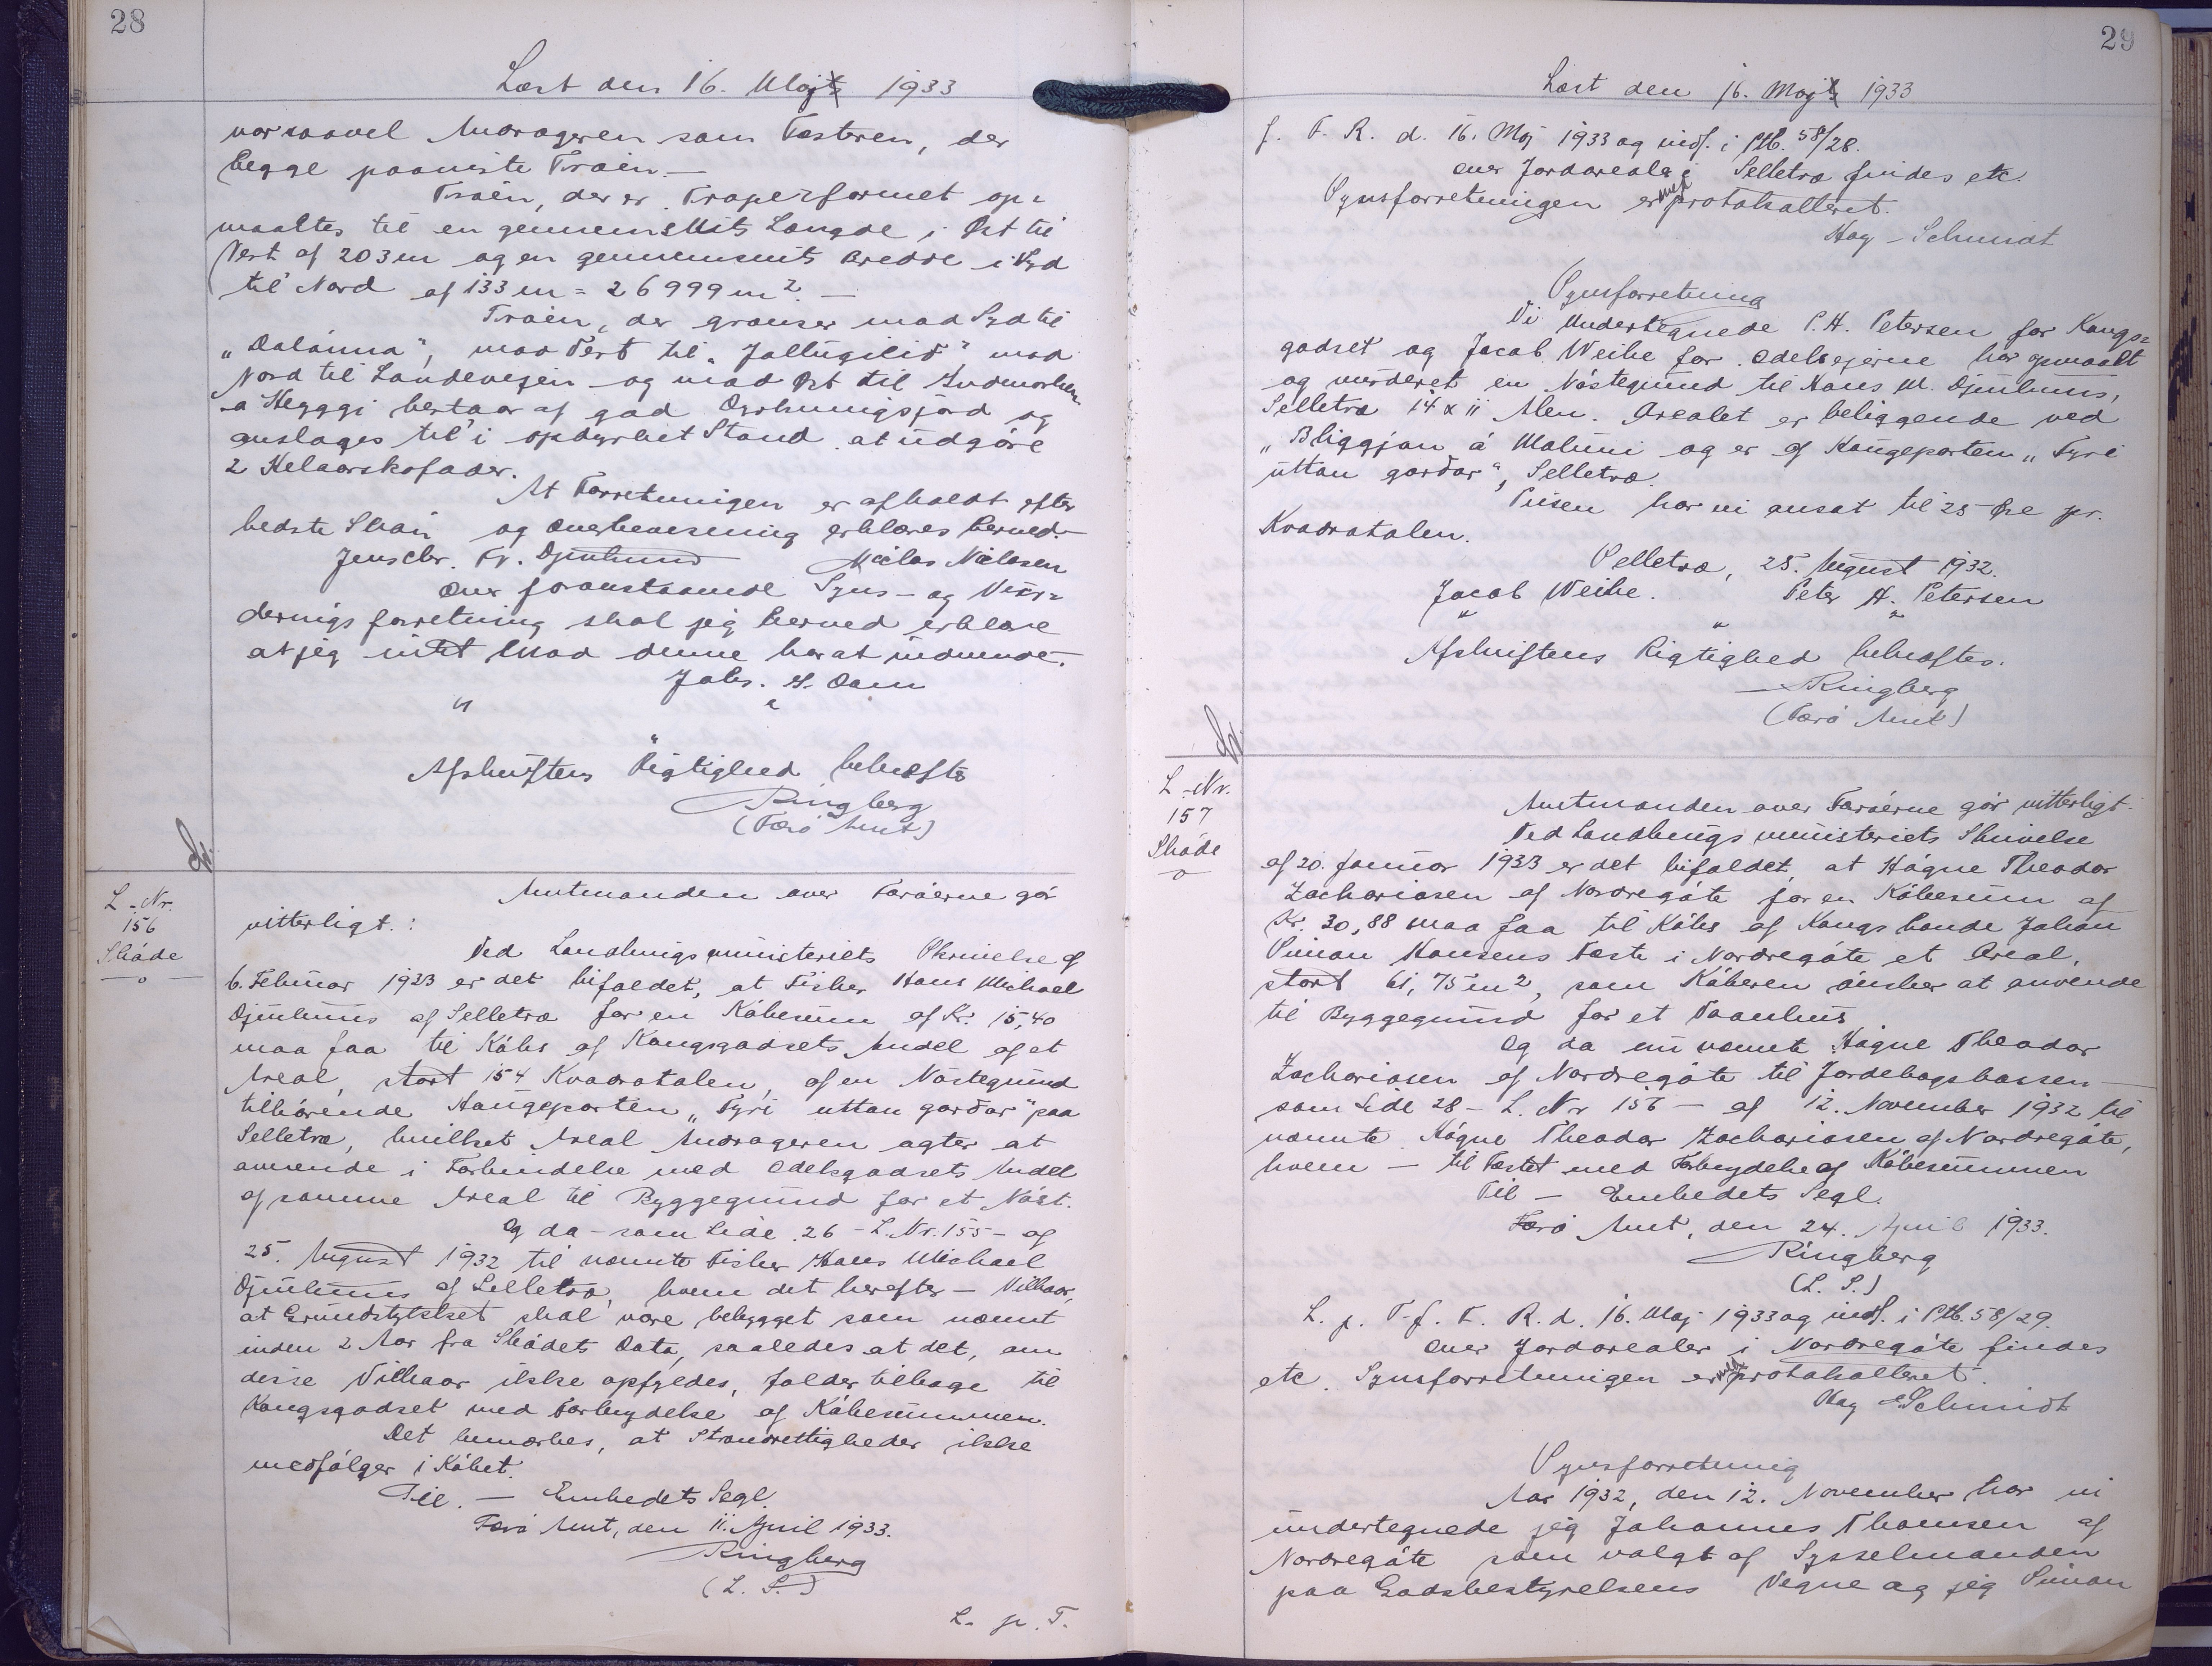 28
Læst den 16. Majts 1933
var saavel Andrageren som Fæsteren, der
begge paaviste Traën.—
Traën, der er Trapezformet op-
maaltes til en gennemsnits Længde i Øst til
Vest af 203 m og en gennemsnits Bredde i Syd
til Nord af 133 m = 26999 m². —
Traën, der grænser mod Syd til
„Dalánna", mod Vest til „Jallúgilið" mod
Nord til Landevejen og mod Øst til Indmarken
á Heyggi bestaar af god Dyrkningsjord og
anslages til i opdyrket Stand at udgöre
2 Kelaarskofoder.
At Forretningen er afholdt efter
bedste Skön og Overbevisning erklæres herved.
Jens Chr. Fr. Djurhuus Niclas Niclasen
Over foranstaaende Syns- og Vur-
deringsforretning skal jeg herved erklære
at jeg intet mod denne har at indvende.
Johs. H. Dam
" "
"
Afskriftens Rigtighed bekræftes
Ringberg
(Færö Amt)
L.-Nr.
156
Sköde
Amtmanden over Færöerne gör
vitterligt. :
Ved Landbrugsministeriets Skrivelse af
6. Februar 1933 er det bifaldet, at Fisker Hans Michael
Djurhuus af Selletræ for en Köbesum af Kr. 15,40
maa faa til Köbs af Kongsgodsets Andel af et
Areal, stort 154 Kvadratalen, af en Nöstegrund
tilhörende Haugeparten „Fyri uttan gardar" paa
Selletræ, hvilket Areal Andrageren agter at
anvende i Forbindelse med Odelsgodsets Andel
af samme Areal til Byggegrund for et Nöst.
Og da – som Side 26 – L. Nr. 155 – af
25. August 1932 til nævnte Fisker Hans Michael
Djurhuus af Selletræ, hvem det herefter — Vilkaar,
at Grundstykket skal være bebygget som nævnt
inden 2 Aar fra Sködets Dato, saaledes at det, om
disse Vilkaar ikke opfyldes, falder tilbage til
Kongsgodset med Forbrydelse af Köbesummen.
Det bemærkes, at Strandrettigheder ikke
medfölger i Köbet.
Til. — Embedets Segl.
Færö Amt, den 11. April 1933.
Ringberg
(L. S.)
L. p. T.
29
Læst den 16. Majts 1933
f. F. R. d. 16. Maj 1933 og indf. i Ptb. 58/28.
Over Jordarealer i Selletræ findes etc.
Synsforretningen er medprotokolleret.
Hag-Schmidt
Synsforretning
Vi Undertegnede P. H. Petersen for Kongs-
godset og Jacob Weihe for Odelsejerne har opmaalt
og vurderet en Nöstegrund til Hans M. Djurhuus,
Selletræ 14 x 11 Alen. Arealet er beliggende ved
„Bliggjan á Maluni og er af Haugeparten „Fyri
uttan gardar", Selletræ.
Prisen har vi ansat til 25 Öre pr.
Kvadratalen.
Selletræ, 25. August 1932.
Jacob Weihe. Peter H. Petersen
" " "
Afskriftens Rigtighed bekræftes.
Ringberg
(Færö Amt)
L.-Nr.
157
Sköde
Amtmanden over Færöerne gör vitterligt.
Ved Landbrugsministeriets Skrivelse
af 20. Januar 1933 er det bifaldet, at Högne Theodor
Zachariasen af Nordregöte for en Köbesum af
Kr. 30,88 maa faa til Köbs af Kongsbonde Johan
Simon Hansens Fæste i Nordregöte et Areal,
stort 61,75 m², som Köberen önsker at anvende
til Byggegrund for et Vaanhus
Og da nu nævnte Högne Theodor
Zachariasen af Nordregöte til Jordebogskassen
som Side 28 – L. Nr 156 – af 12. November 1932 til
nævnte Högne Theodor Zachariasen af Nordregöte,
hvem — til Fæstet med Forbrydelse af Köbesummen
Til — Embedets Segl.
Færö Amt, den 24. April 1933.
Ringberg
(L. S.)
L. p. T. f. F. R. d. 16. Maj 1933 og indf. i Ptb. 58/29.
Over Jordarealer i Nordregöte findes
etc. Synsforretningen er medprotokolleret.
Hag Schmidt
Synsforretning
Aar 1932, den 12. November har vi
undertegnede jeg Johannes Thomsen af
Nordregöte som valgt af Sysselmanden
paa Godsbestyrelsens Vegne og jeg Simon